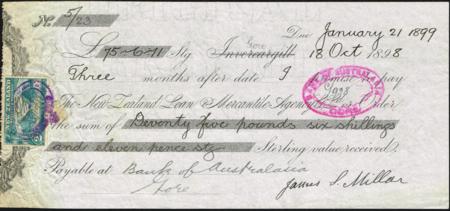 Due January 21 1899
No. 5/23
£ 75-6-11 Stg Gore Invercargill 18 Oct 1898
Three months after date I promise to pay
The New Zealand Loan & Mercantile Agency Order
the sum of Seventy five pounds six shillings
and eleven pence stg Sterling value received.
Payable at Bank of Australasia
Gore
James S. Millar